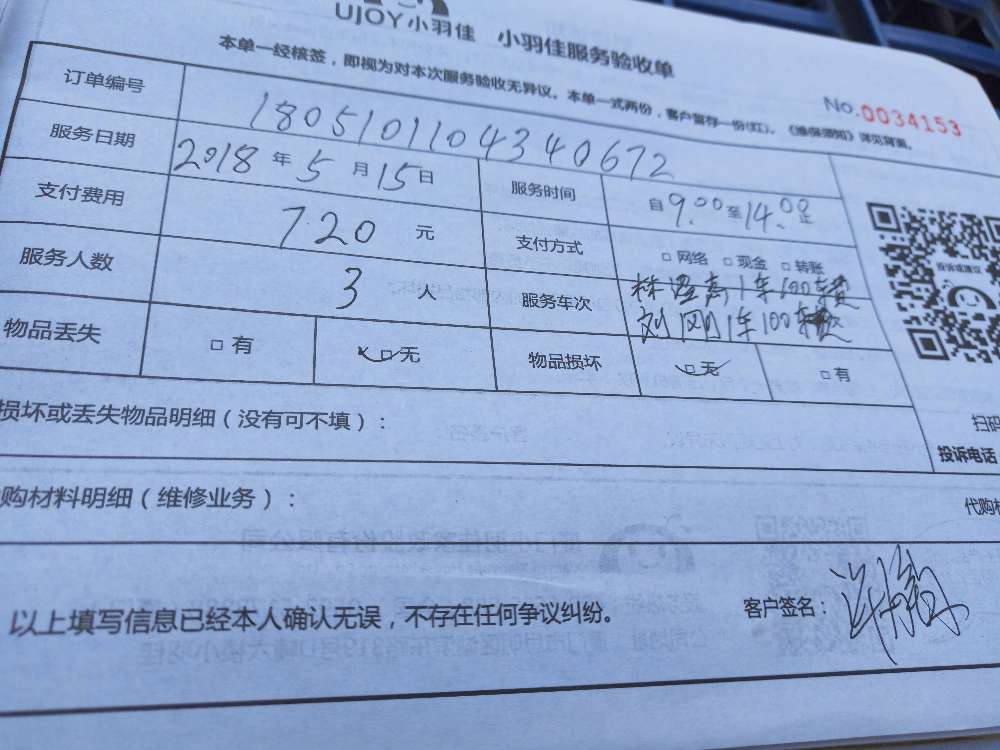 UJOY小羽佳 小羽佳服务验收单
本单一经核签，即视为对本次服务验收无异议。本单一式两份，客户留存一份(红)。《维保须知》详见背面。
No.0034153
订单编号 1805101104340672
服务日期 2018年5月15日 服务时间 自9:00至14:00止
支付费用 720元 支付方式 □网络 □现金 □转账
服务人数 3人 服务车次 1车100车费
刘刚1车100
物品丢失 □有 □无 物品损坏 □无 □有
损坏或丢失物品明细（没有可不填）：
扫码
投诉电话
购材料明细（维修业务）：
代购材
以上填写信息已经本人确认无误，不存在任何争议纠纷。 客户签名：